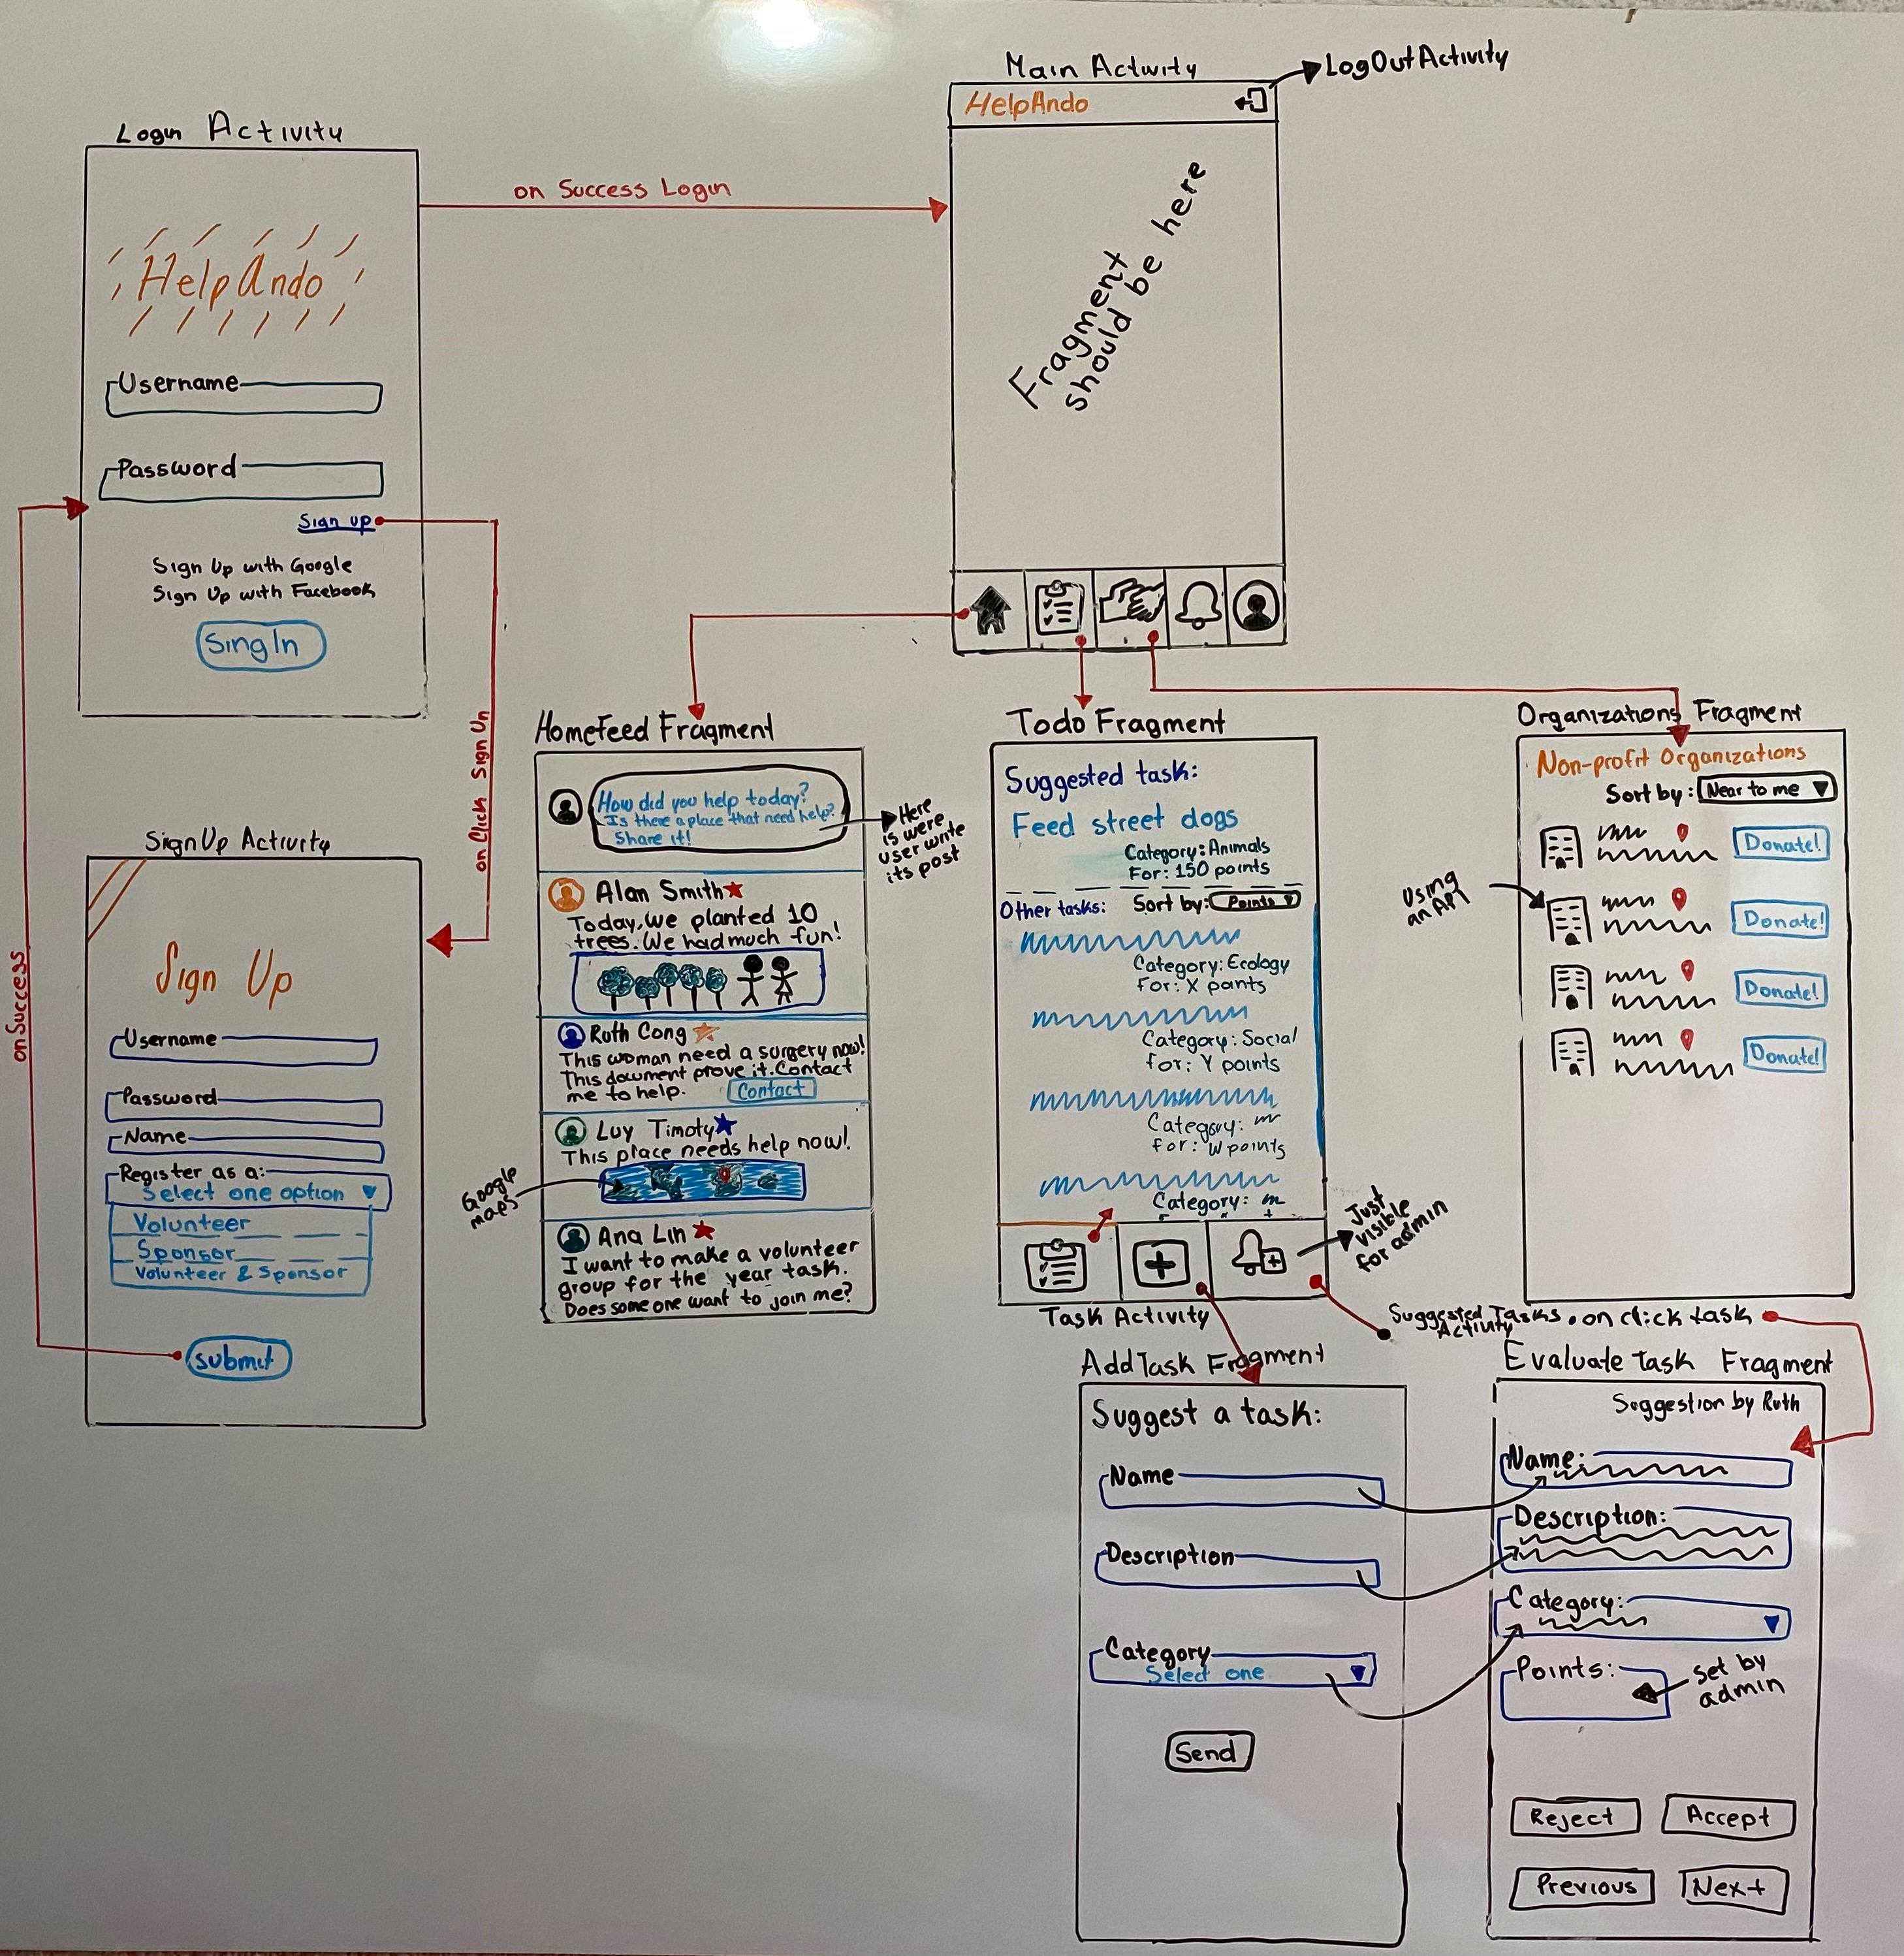 Main Activity
LogOutActivity
HelpAndo
Fragment
should be here
Login Activity
on Success Login
HelpAndo
Username
Password
Sign up
Sign Up with Google
Sign Up with Facebook
SingIn
on Click Sign Up
on Success
SignUp Activity
Sign Up
Username
Password
Name
Register as a:
Select one option
Volunteer
Sponsor
Volunteer & Sponsor
submit
HomeFeed Fragment
How did you help today?
Is there a place that need help?
Share it!
Here
is were
user write
its post
Alan Smith
Today, we planted 10
trees. We had much fun!
Ruth Cong
This woman need a surgery now!
This document prove it. Contact
me to help.
Contact
Luy Timoty
This place needs help now!
Google
maps
Ana Lin
I want to make a volunteer
group for the year task.
Does some one want to join me?
Todo Fragment
Suggested task:
Feed street dogs
Category: Animals
For: 150 points
Other tasks: Sort by: Points
Category: Ecology
For: X points
Category: Social
for: Y points
Category:
for: W points
Category:
Just
visible
for admin
Task Activity
Organizations Fragment
Non-profit Organizations
Sort by: Near to me
Donate!
Donate!
Donate!
Donate!
Using
an API
Suggested Tasks
Activity
on click task
AddTask Fragment
Suggest a task:
Name
Description
Category
Select one
Send
Evaluate task Fragment
Suggestion by Ruth
Name:
Description:
Category:
Points:
set by
admin
Reject
Accept
Previous
Next